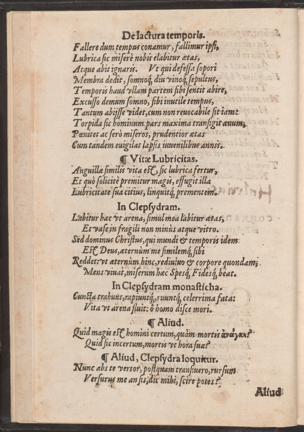 De iactura temporis.
Fallere dum tempus conamur, fallimur ipsi,
Lubrica sic miserè nobis elabitur ætas,
Atque abit ignaris. Vt qui defessa sopori
Membra dedit, somnoq́; diu vinoq́; sepultus,
Temporis haud vllam partem sibi sentit abire,
Excusso demum somno, sibi inutile tempus,
Tantum abijsse videt, cum non reuocabile sit iam:
Torpida sic hominum pars maxima transigit æuum,
Pœnitet ac serò miseros, prudentior ætas
Cum tandem euigilat lapsis iuuenilibus annis.
¶ Vitæ Lubricitas.
Anguillæ similis vita est, sic lubrica fertur,
Et quò solicitè premitur magis, effugit illa
Lubricitate sua citius, linquitq́; prementem.
In Clepsydram.
Labitur hæc vt arena, simul mea labitur ætas,
Et vase in fragili non minùs atque vitro.
Sed dominus Christus, qui mundi & temporis idem
Est Deus, æternùm me similemq́; sibi
Reddet: vt æternùm hinc, rediuiuo & corpore quondam:
Mens viuat, miserum hæc Spesq́; Fidesq́; beat.
In Clepsydram monasticha.
Cuncta trahunt, rapiuntq́; ruuntq́; celerrima fata:
Vita vt arena fluit: ô homo disce mori.
¶ Aliud.
Quid magis est homini certum, quàm mortis ἀνάγκη?
Quid sic incertum, mortis vt hora suæ?
¶ Aliud, Clepsydra loquitur.
Nunc abs te versor, postquam transiuero, rursum
Versurus me an sis, dic mihi, scire potes?
Aliud